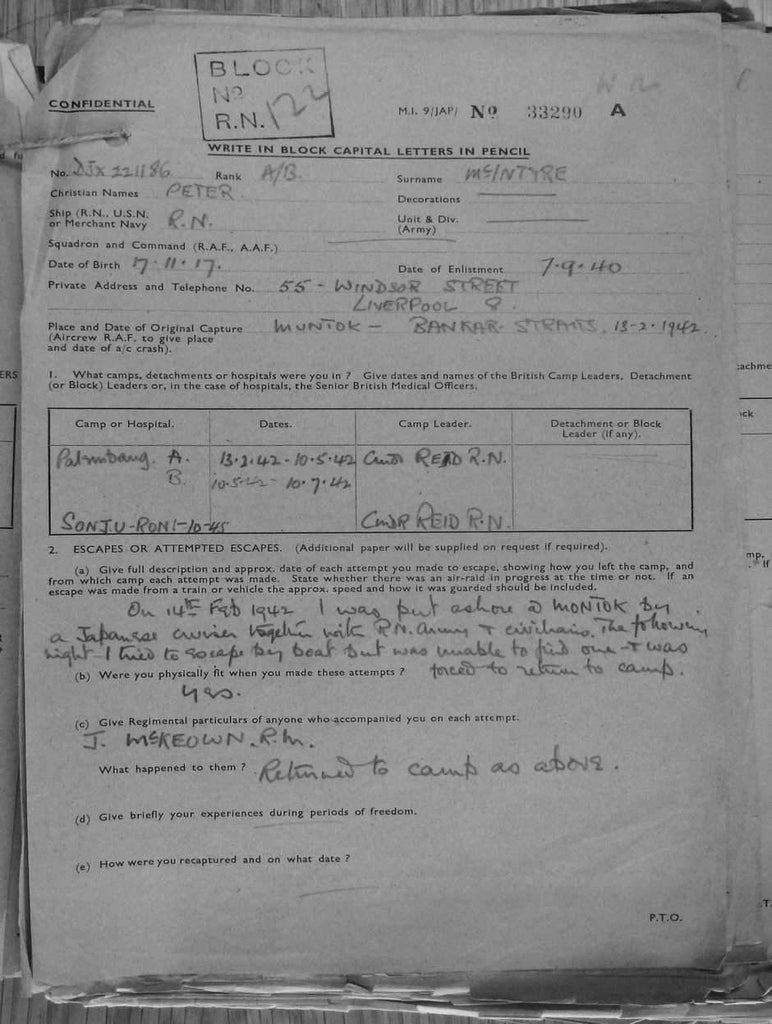 BLOCK
Nº
R.N. 122
CONFIDENTIAL
M.I. 9/JAP/ Nº 33290 A
WRITE IN BLOCK CAPITAL LETTERS IN PENCIL
No. DJX 221186 Rank A/B. Surname McINTYRE
Christian Names PETER Decorations
Ship (R.N., U.S.N. or Merchant Navy R.N. Unit & Div. (Army)
Squadron and Command (R.A.F., A.A.F.)
Date of Birth 7.11.17. Date of Enlistment 7.9.40
Private Address and Telephone No. 55 - WINDSOR STREET
LIVERPOOL 8.
Place and Date of Original Capture MUNTOK - BANKAR STRAITS. 13-2-1942.
(Aircrew R.A.F. to give place
and date of a/c crash).
1. What camps, detachments or hospitals were you in ? Give dates and names of the British Camp Leaders, Detachment
(or Block) Leaders or, in the case of hospitals, the Senior British Medical Officers.
Camp or Hospital. Dates. Camp Leader. Detachment or Block
Leader (if any).
Palmbang. A. 13.2.42 - 10.5.42 Cmdr REID R.N.
B. 10.5.42 - 10.7.42
SONJU-RONI-10-45 CMDR REID R.N.
2. ESCAPES OR ATTEMPTED ESCAPES. (Additional paper will be supplied on request if required).
(a) Give full description and approx. date of each attempt you made to escape, showing how you left the camp, and
from which camp each attempt was made. State whether there was an air-raid in progress at the time or not. If an
escape was made from a train or vehicle the approx. speed and how it was guarded should be included.
On 14th Feb 1942 I was put ashore @ MONTOK by
a Japanese cruiser together with R.N. Army & civilians. The following
night I tried to escape by boat but was unable to find one & was
forced to return to camp.
(b) Were you physically fit when you made these attempts ?
Yes.
(c) Give Regimental particulars of anyone who accompanied you on each attempt.
J. McKEOWN. R.M.
What happened to them ? Returned to camp as above.
(d) Give briefly your experiences during periods of freedom.
(e) How were you recaptured and on what date ?
P.T.O.